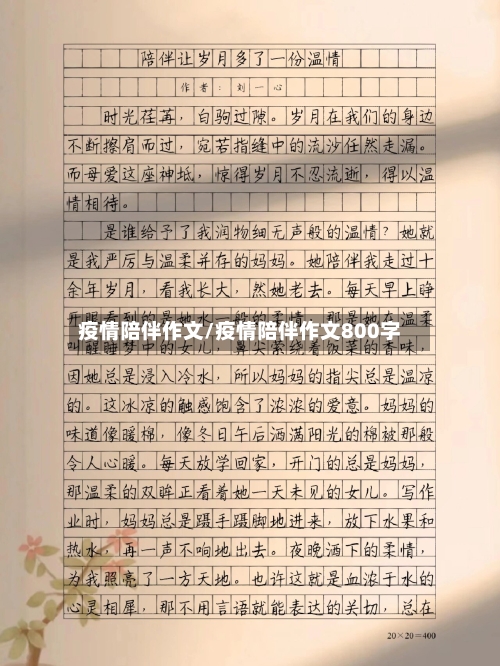 陪伴让岁月多了一份温情
作者：刘一心
时光荏苒，白驹过隙。岁月在我们的身边
不断擦肩而过，宛若指缝中的流沙任然走漏。
而母爱这座神坻，惊得岁月不忍流逝，得以温
情相待。
是谁给予了我润物细无声般的温情？她就
是我严厉与温柔并存的妈妈。她陪伴我走过十
余年岁月，看我长大，然她老去。每天早上睁
开眼看到的是她水一般的柔情，那是她在温柔
疫情陪伴作文/疫情陪伴作文800字
叫醒睡梦中的女儿，鼻尖萦绕着饭菜的香味，
因她总是浸入冷水，所以妈妈的指尖总是温凉
的。这冰凉的触感饱含了浓浓的爱意。妈妈的
味道像暖棉，像冬日午后洒满阳光的棉被那般
令人心暖。每天放学回家，开门的总是妈妈，
那温柔的双眸正看着她一天未见的女儿。写作
业时，妈妈总是蹑手蹑脚地进来，放下水果和
热水，再一声不响地出去。夜晚洒下的柔情，
为我照亮了一方天地。也许这就是血浓于水的
心灵相犀，那不用言语就能表达的关切，总在
20×20=400